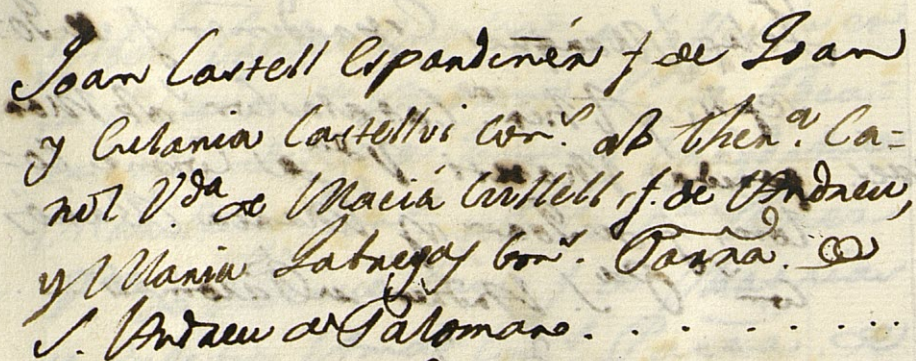 Joan Castell Espardeñér f. de Joan
y Eulania Castellvi Con.s ab There.a Ca=
nol V.da de Maciá Cullell f. de Andreu,
y Maria Sabregas Con.s Parra.
S. Andreu de Palomar. . . . . . . . .